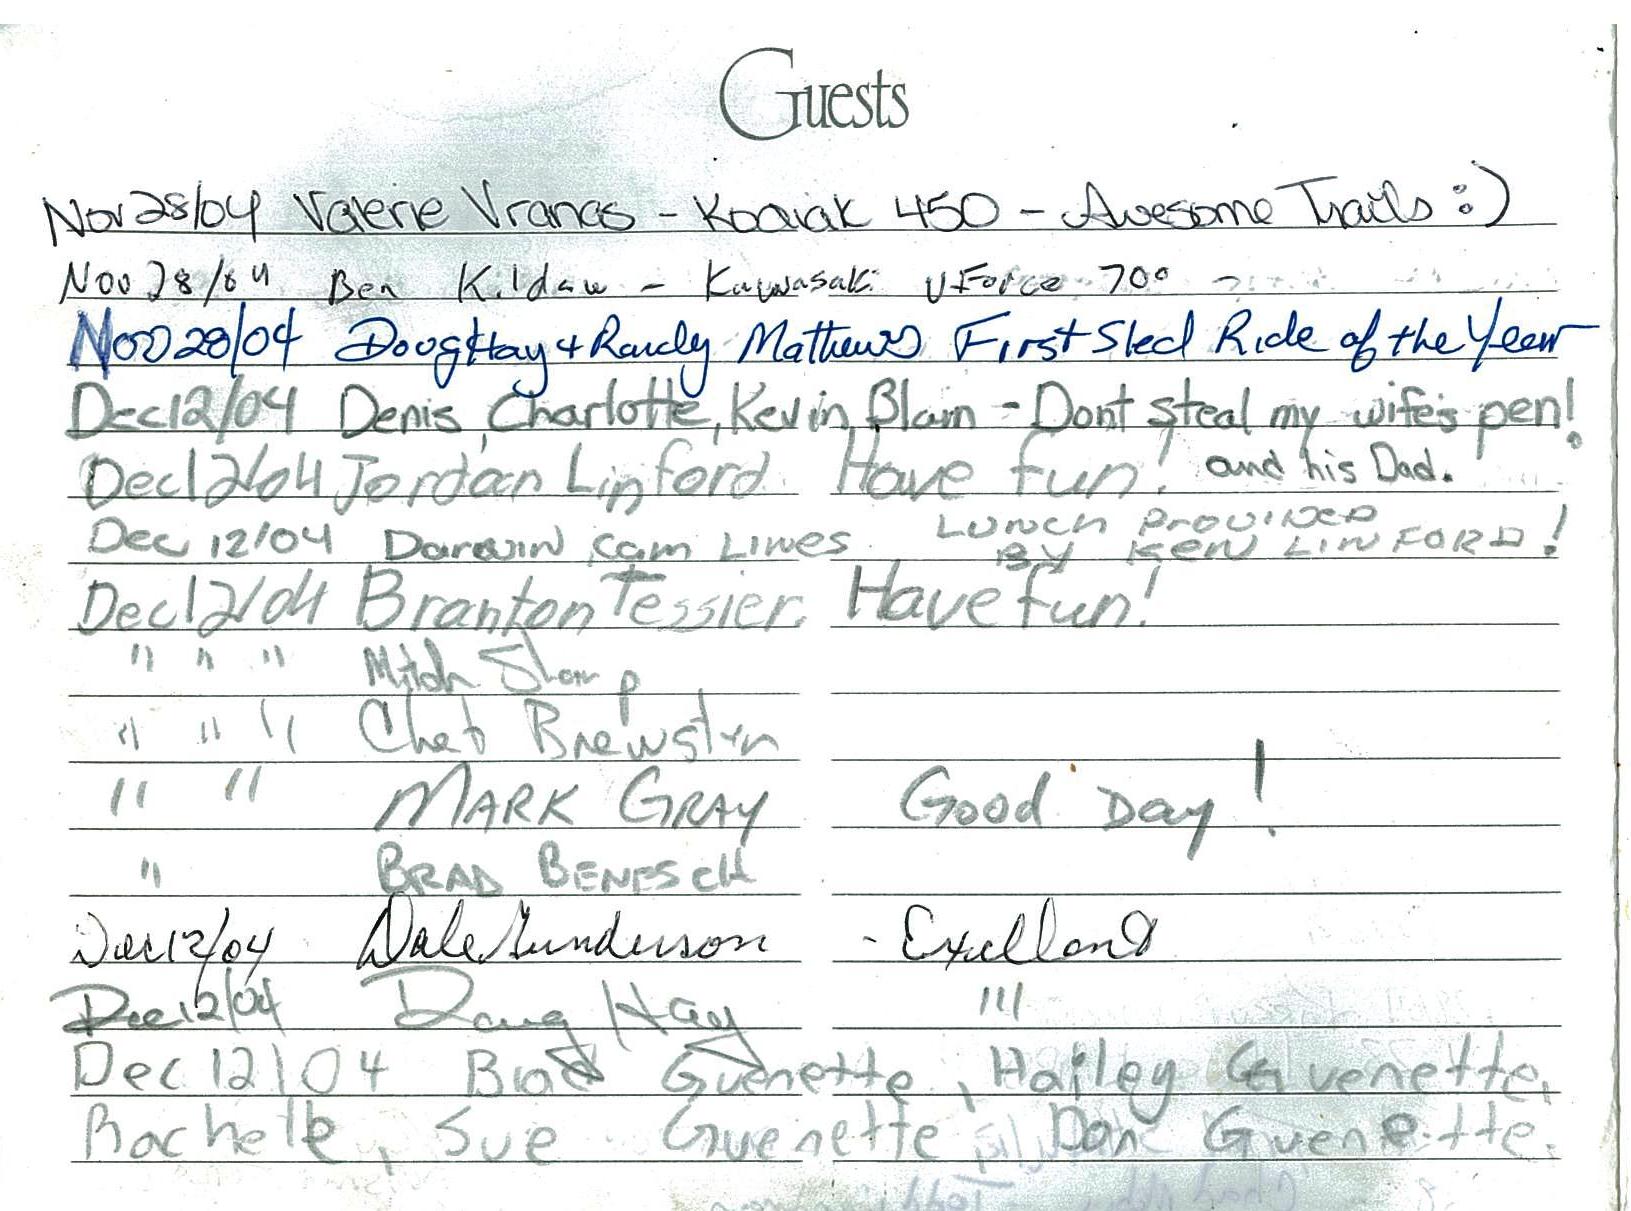 Guests
Nov 28/04 Valerie Vranas - Kodiak 450 - Awesome Trails :)
Nov 28/04 Ben Kildaw - Kawasaki VForce 700
Nov 28/04 Doug Hay & Randy Mathews First Sled Ride of the Year
Dec 12/04 Denis, Charlotte, Kevin, Blain - Dont steal my wife's pen!
Dec 12/04 Jordan Linford Have fun! and his Dad.
Dec 12/04 Darwin Sam Lines LUNCH PROVIDED
BY KEN LINFORD!
Dec 12/04 Branton Tessier. Have fun!
" " " Mitch
" " " Chet Brewster
" " MARK GRAY Good Day!
" BRAD BENESCH
Dec 12/04 Dale Gunderson - Exellant
Dec 12/04 Doug Hay !!!
Dec 12/04 Brad Guenette, Hailey Guenette,
Rachelle, Sue Guenette Dan Guenette.